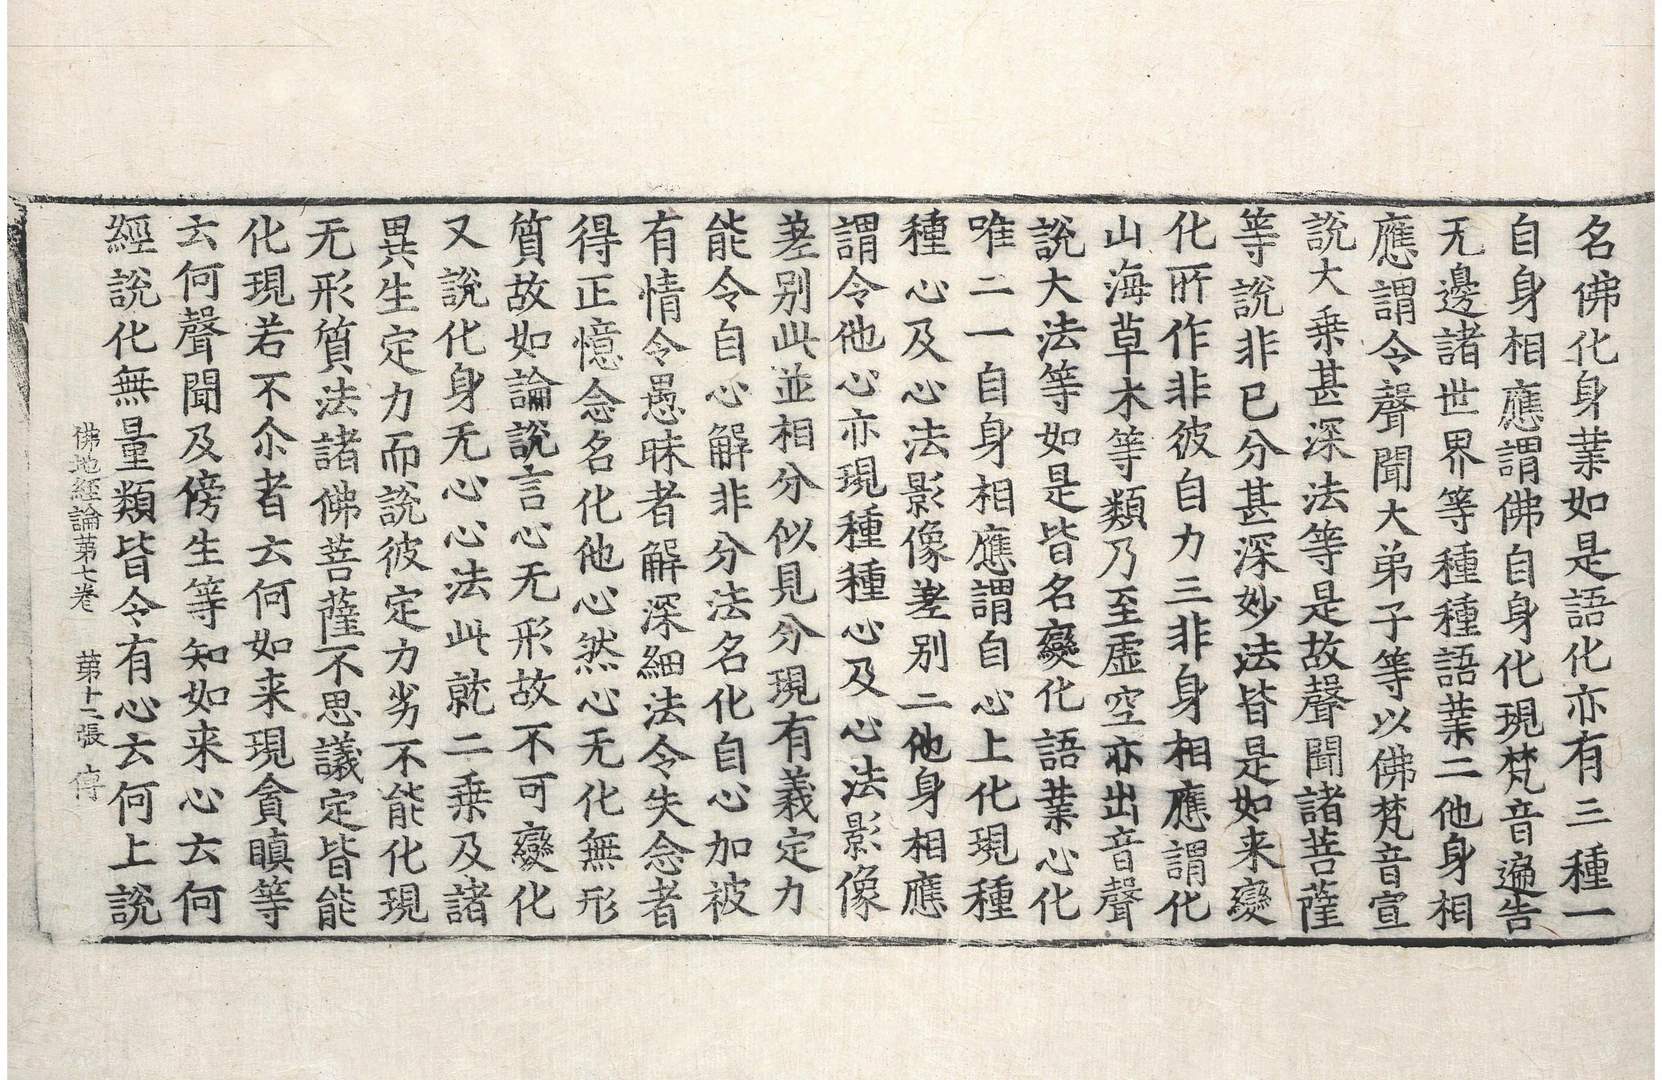 名佛化身業如是語化亦有三種一
自身相應謂佛自身化現梵音遍告
无邊諸世界等種種語業二他身相
應謂令聲聞大弟子等以佛梵音宣
說大乗甚深法等是故聲聞諸菩薩
等說非已分甚深妙法皆是如来變
化所作非彼自力三非身相應謂化
山海草木等類乃至虛空亦出音聲
說大法等如是皆名變化語業心化
唯二一自身相應謂自心上化現種
種心及心法影像差別二他身相應
謂令他心亦現種種心及心法影像
差別此並相分似見分現有義定力
能令自心解非分法名化自心加被
有情令愚昧者解深細法令失念者
得正憶念名化他心然心无化無形
質故如論說言心无形故不可變化
又說化身无心心法此就二乗及諸
異生定力而說彼定力劣不能化現
无形質法諸佛菩薩不思議定皆能
化現若不尒者云何如来現貪瞋等
云何聲聞及傍生等知如来心云何
經說化無量類皆令有心云何上說
佛地經論第七卷 第十二張 傳